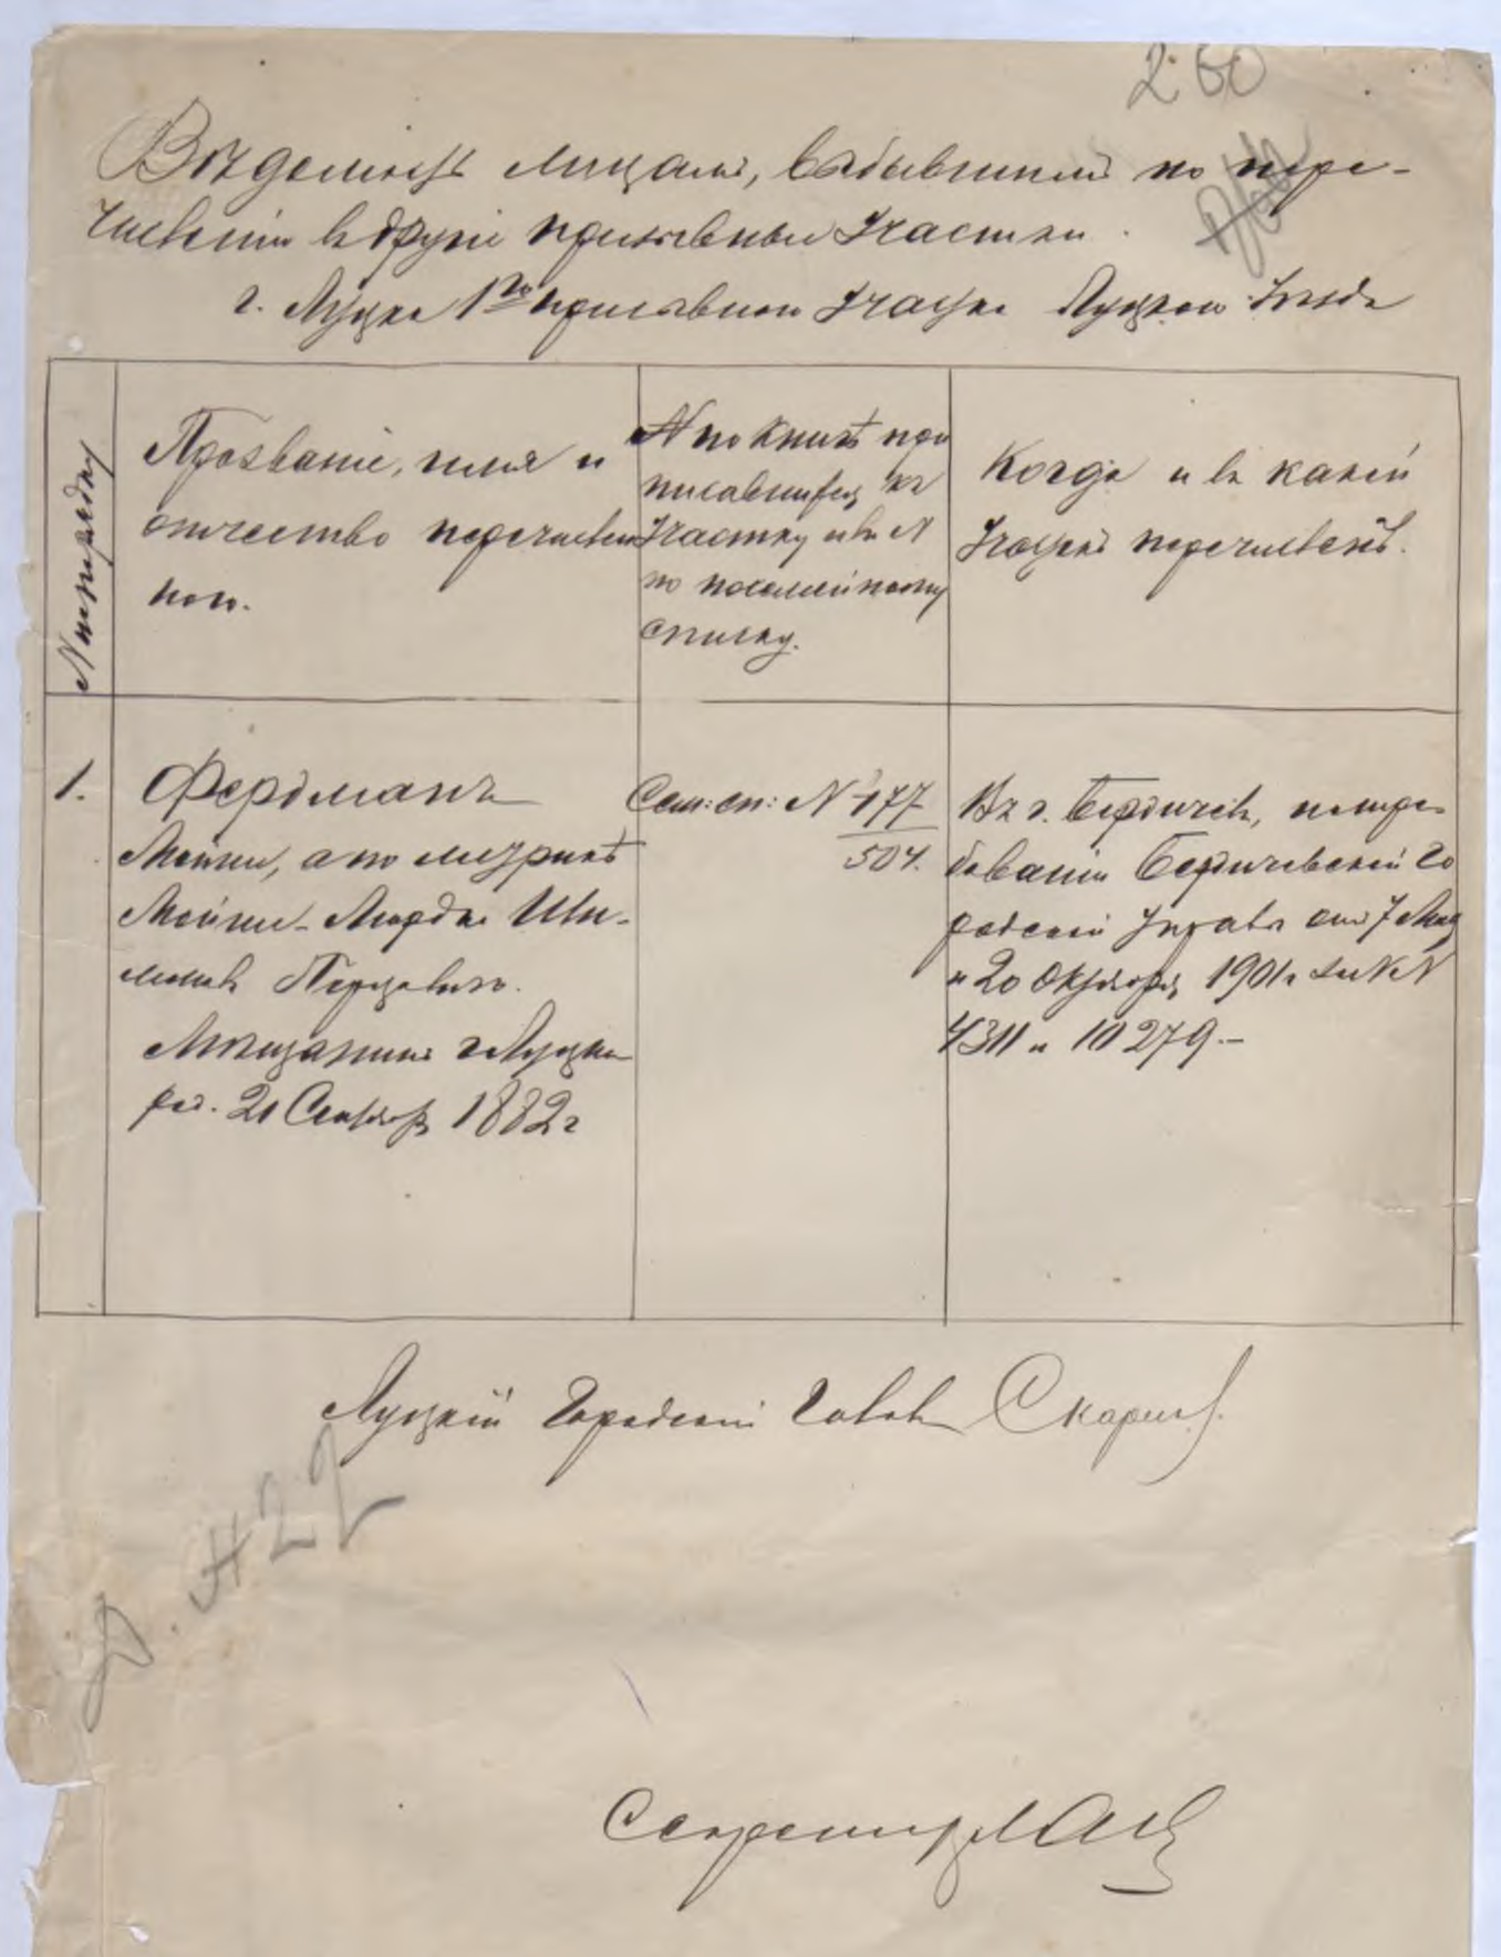 260
Вѣдомость лицамъ, выбывшимъ по пере-
численію въ другіе призывные участки
г. Луцка 1го призывного участка Луцкого уѣзда
№ по порядку
Прозваніе, имя и
отчество перечислен
ного.
№ по книгѣ при
писавшихся къ
участку или №
по посемейному
списку.
Когда и въ какой
участокъ перечисленъ.
1.
Фердманъ
Мошко, а по метрикѣ
Мошко-Мордко
Перцовичъ.
Мѣщанинъ г. Луцка
род. 21 Сентября 1882 г
Сем: сп: № 177
504.
Въ г. Бердичевъ, по тре-
бованію Бердичевской Го
родской Управы отъ 7 Мая
и 20 Октября 1901 г за №№
4311 и 10279.-
Луцкій Городской Голова
№ 29
Секретарь